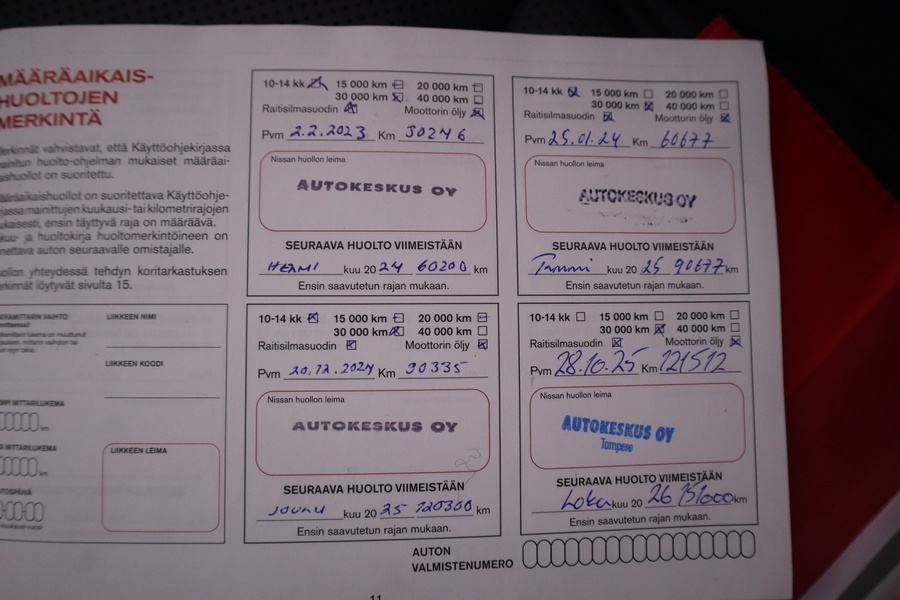 MÄÄRÄAIKAIS-
HUOLTOJEN
MERKINTÄ
vahvistavat, että Käyttöohjekirjassa
huolto-ohjelman mukaiset määräai-
on suoritettu.
on suoritettava Käyttöohje-
mainittujen kuukausi- tai kilometrirajojen
ensin täyttyvä raja on määräävä.
ja huoltokirja huoltomerkintöineen on
auton seuraavalle omistajalle.
yhteydessä tehdyn koritarkastuksen
löytyvät sivulta 15.
LIIKKEEN NIMI
LIIKKEEN KOODI
km
km
LIIKKEEN LEIMA
10-14 kk 15 000 km 20 000 km
30 000 km 40 000 km
Raitisilmasuodin Moottorin öljy
Pvm 2.2.2023 Km 30246
Nissan huollon leima
AUTOKESKUS OY
SEURAAVA HUOLTO VIIMEISTÄÄN
HELMI kuu 20 24 60200 km
Ensin saavutetun rajan mukaan.
10-14 kk 15 000 km 20 000 km
30 000 km 40 000 km
Raitisilmasuodin Moottorin öljy
Pvm 25.01.24 Km 60677
Nissan huollon leima
AUTOKESKUS OY
SEURAAVA HUOLTO VIIMEISTÄÄN
Tammi kuu 20 25 90677 km
Ensin saavutetun rajan mukaan.
10-14 kk 15 000 km 20 000 km
30 000 km 40 000 km
Raitisilmasuodin Moottorin öljy
Pvm 20.12.2024 Km 90335
Nissan huollon leima
AUTOKESKUS OY
SEURAAVA HUOLTO VIIMEISTÄÄN
JOULU kuu 20 25 120300 km
Ensin saavutetun rajan mukaan.
10-14 kk 15 000 km 20 000 km
30 000 km 40 000 km
Raitisilmasuodin Moottorin öljy
Pvm 28.10.25 Km 121512
Nissan huollon leima
AUTOKESKUS OY
Tampere
SEURAAVA HUOLTO VIIMEISTÄÄN
Loka kuu 20 26 151000 km
Ensin saavutetun rajan mukaan.
AUTON
VALMISTENUMERO
11